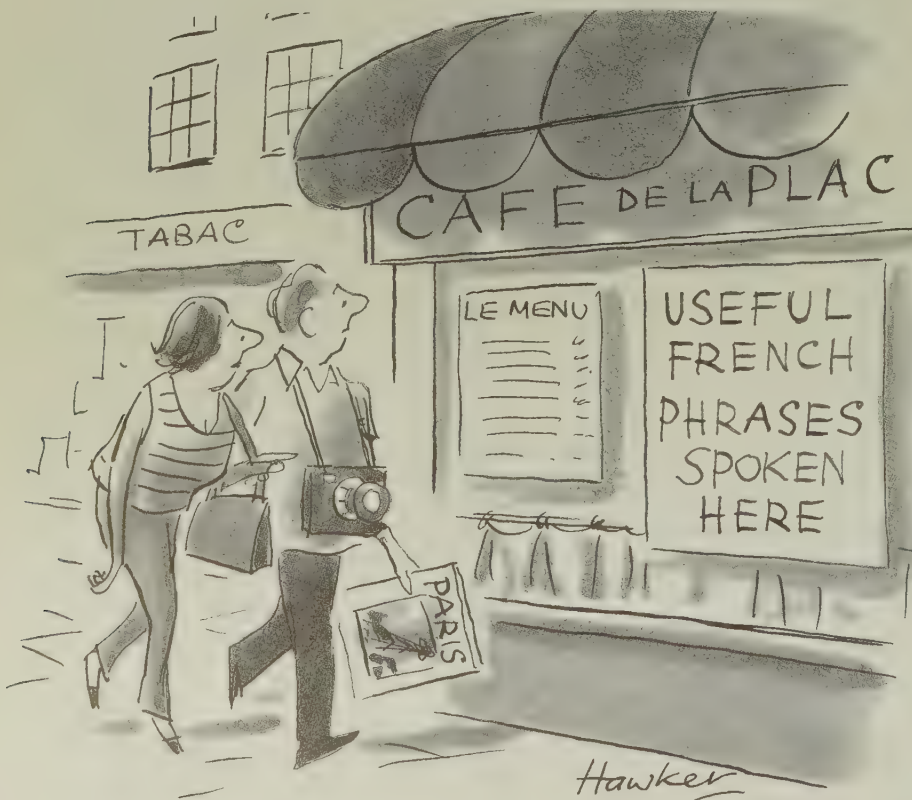 TABAC
CAFE DE LA PLAC
LE MENU
USEFUL
FRENCH
PHRASES
SPOKEN
HERE
PARIS
Hawker